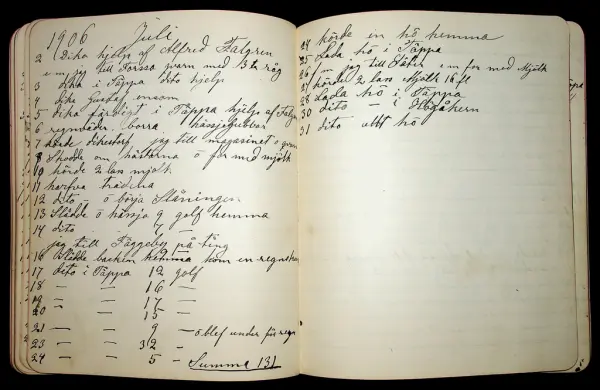 1906 Juli
2 Dika hjelp af Alfred Falgren
em jag till Forssa qvarn med 3 tr råg
3 dika i Täppa dito hjelp
4 dike Gustaf ensam
5 dika färdigt i Täppa hjelp af Falgren
6 regnväder, borra hässjegubbar
7 dikestorf jag till magasinet
8 Skodde om hästarna o for med mjölk
9 körde 2 lass mjölk
11 harfva trädena
12 dito o börja Slåningen
13 Slådde o hässja 9 golf hemma
14 dito 7 —
jag till Fäggeby på ting
16 Slådde backen hemma kom en
17 dito i Täppa 12 golf
18 — — 16 —
19 — — 17 —
20 — — 15 —
21 — — 9 — o blef under för regn
23 — — 32 —
24 — — 5 — Summa 131
24 körde in hö hemma
25 Lada hö i Täppa
26 jag till Säter em for med Mjölk
27 körde 2 lass Mjölk 16 ft
28 Lada hö i Täppa
30 dito — i Högåkern
31 dito allt hö